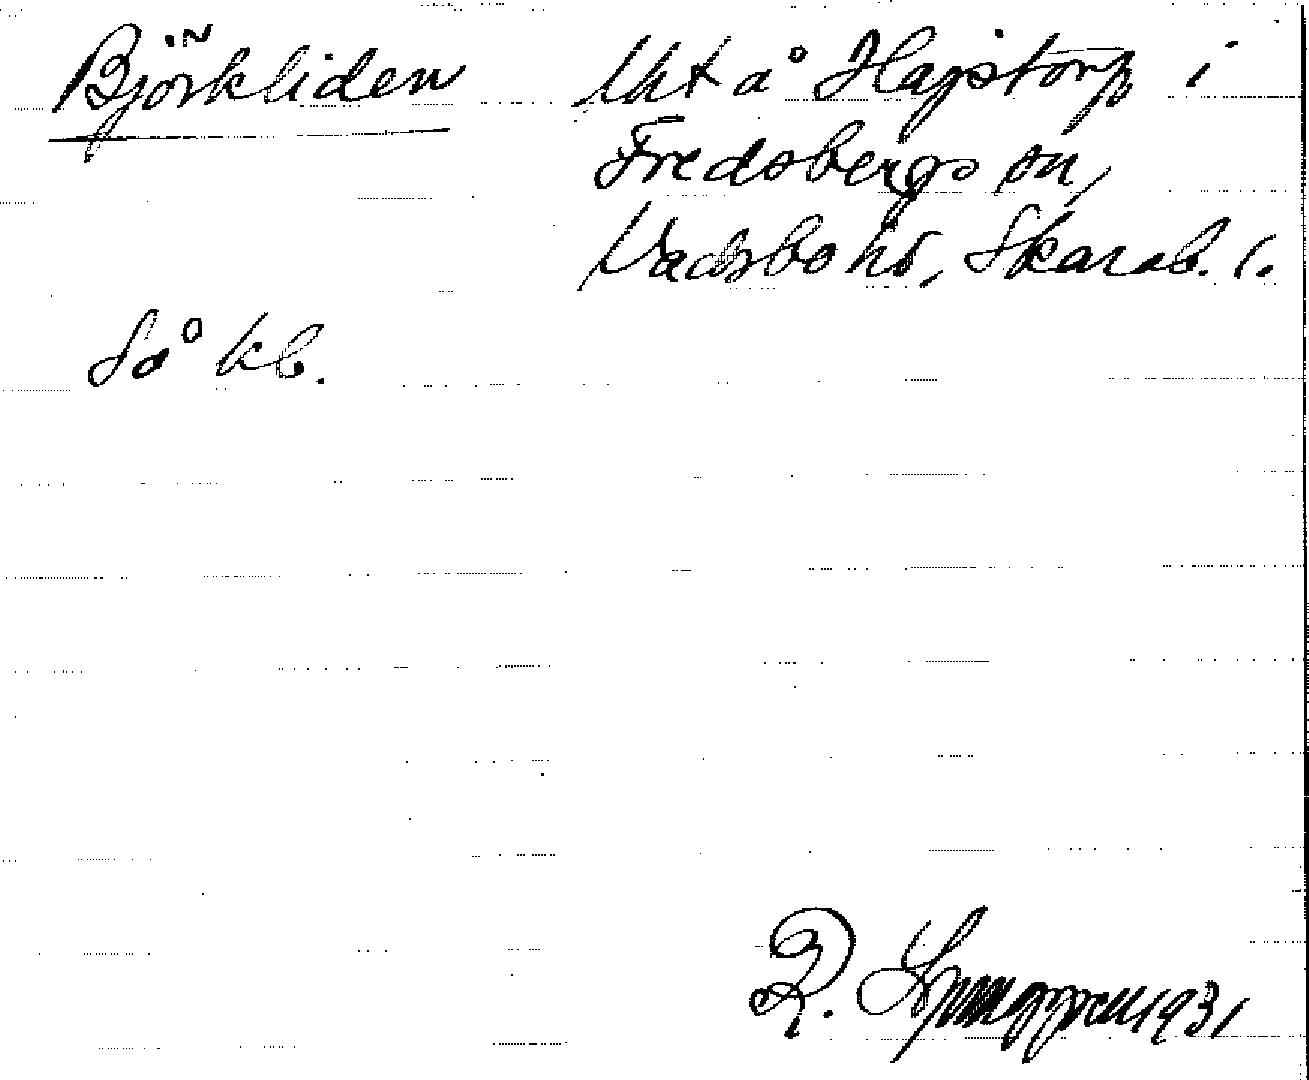 Björkliden Ukt å Hajstorp i
Fredsbergs sn,
Vadsbo hd, Skarab. l.
Så kb.
R. Ljunggren 1931